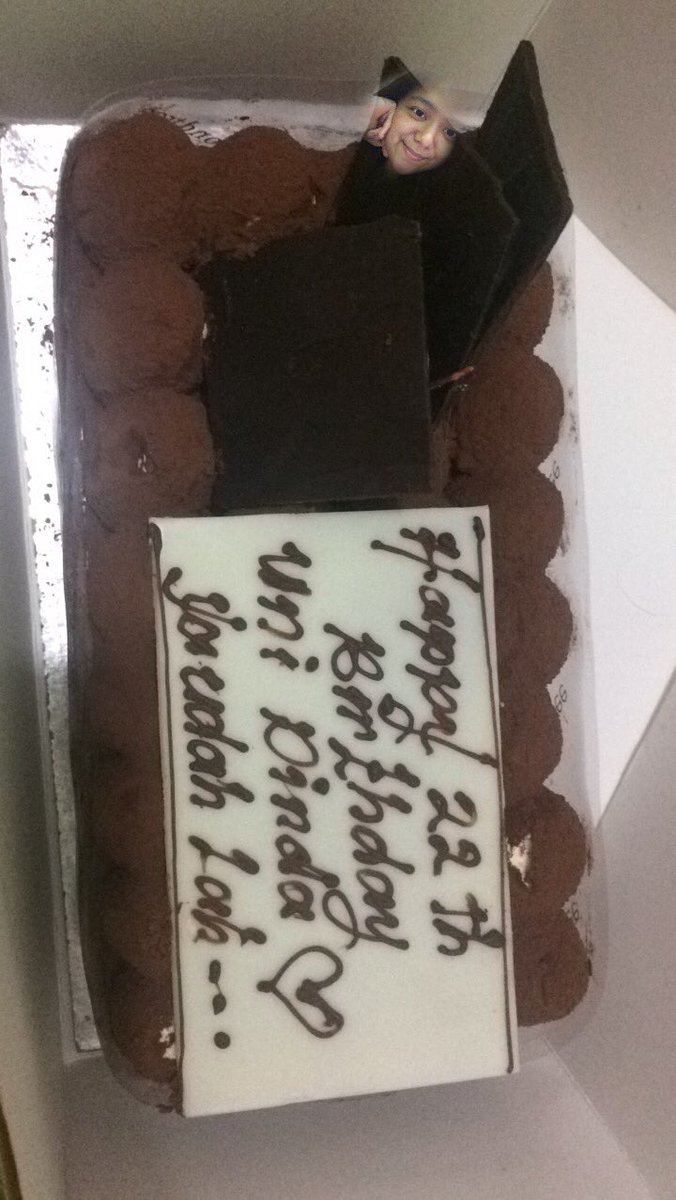 Happy 22 th
Birthday
Uni Dinda
Yorudah Lah ~.